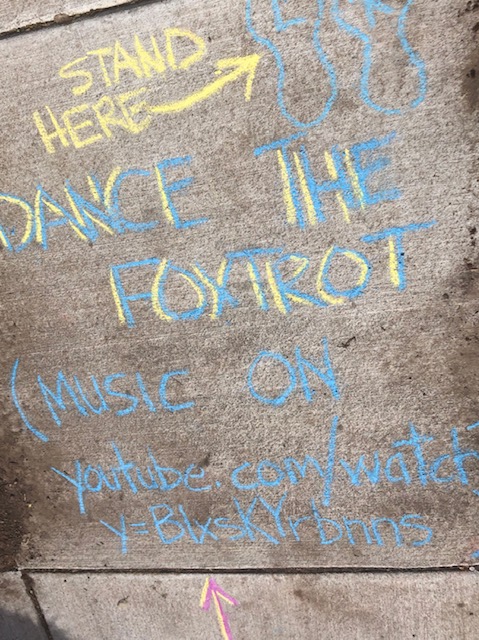 L R
STAND
HERE
DANCE THE
FOXTROT
(MUSIC ON
youtube.com/watch?
v=BlxsKYrbnns